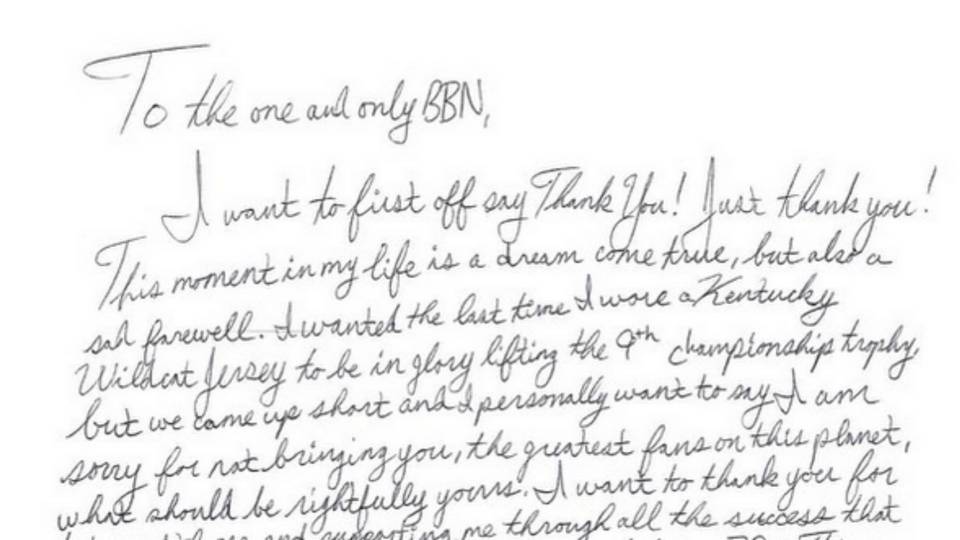 To the one and only BBN,
I want to first off say Thank You! Just thank you!
This moment in my life is a dream come true, but also a
sad farewell. I wanted the last time I wore a Kentucky
Wildcat Jersey to be in glory lifting the 9th championship trophy,
but we came up short and I personally want to say I am
sorry for not bringing you, the greatest fans on this planet,
what should be rightfully yours. I want to thank you for
and supporting me through all the success that